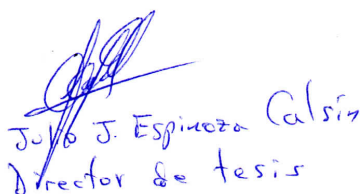 Julio J. Espinoza Calsin
Director de tesis